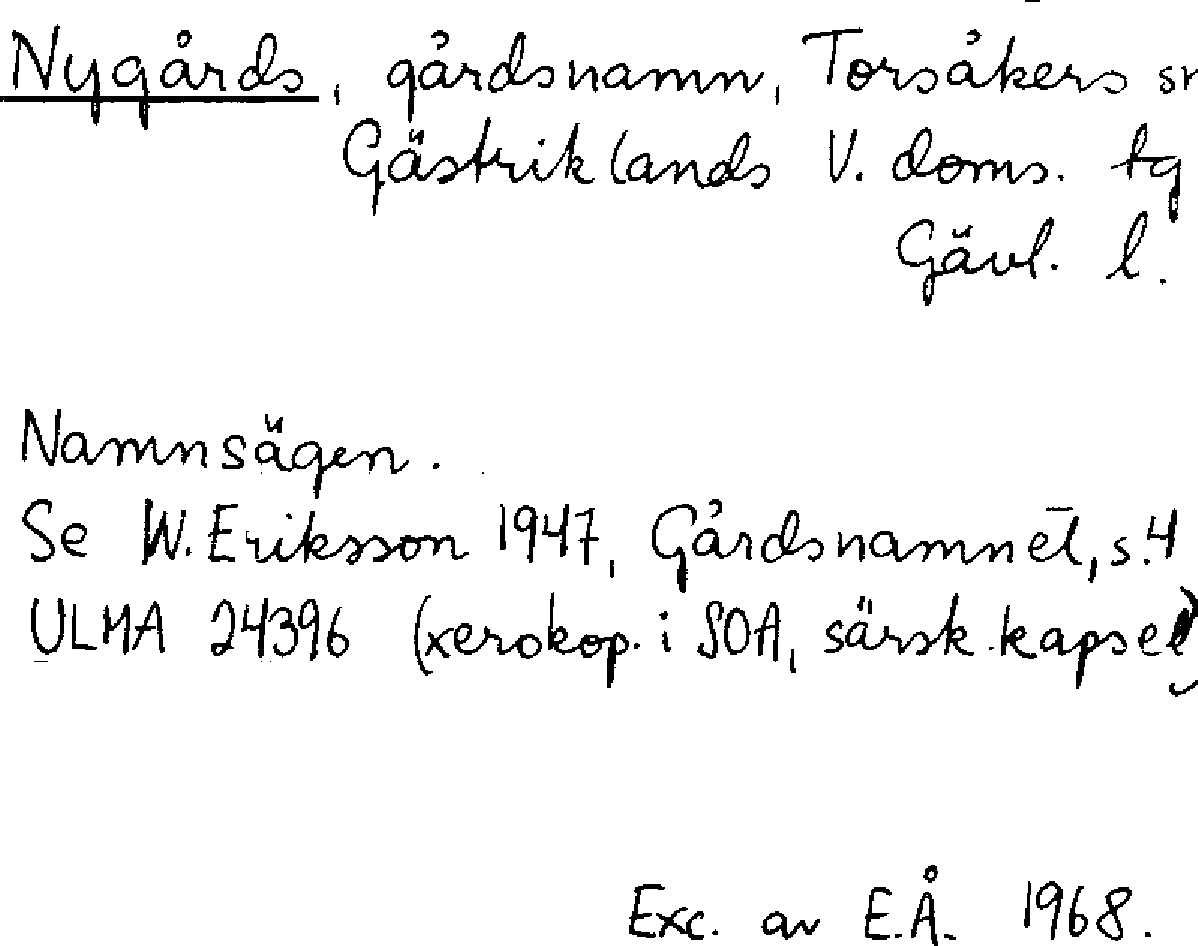 Nygårds, gårdsnamn, Torsåkers sn
Gästriklands V. doms. tg
Gävl. l.
Namnsägen.
Se W. Eriksson 1947, Gårdsnamnet, s.4
ULMA 24396 (xerokop. i SOA, särsk. kapsel)
Exc. av E.Å. 1968.